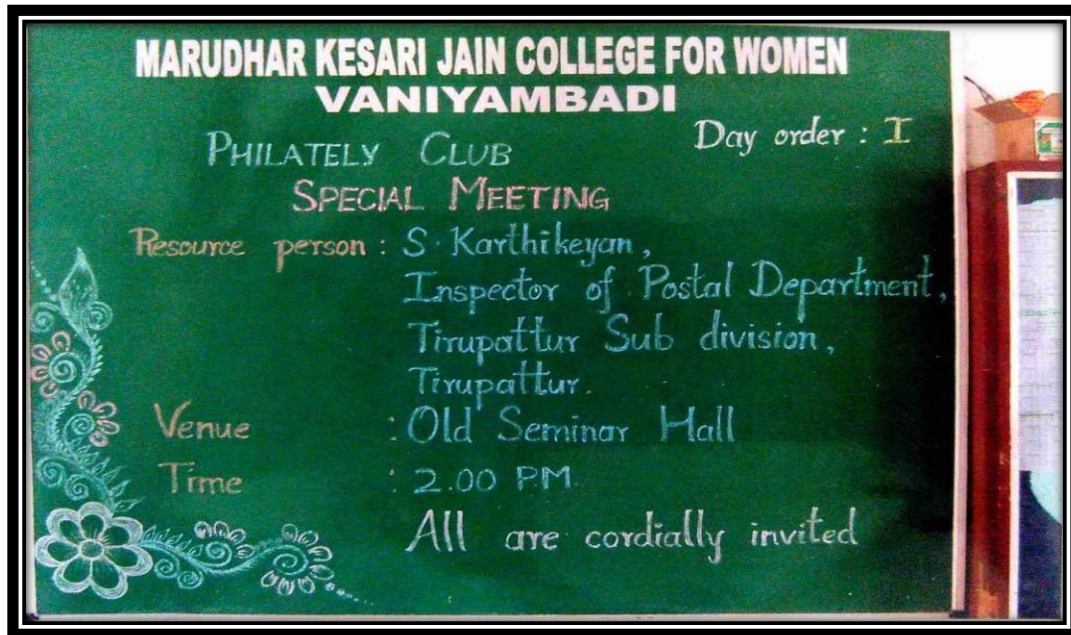 MARUDHAR KESARI JAIN COLLEGE FOR WOMEN
VANIYAMBADI
Day order : I
PHILATELY CLUB
SPECIAL MEETING
Resource person : S. Karthikeyan,
Inspector of Postal Department,
Tirupattur Sub division,
Tirupattur.
Venue : Old Seminar Hall
Time : 2.00 P.M.
All are cordially invited